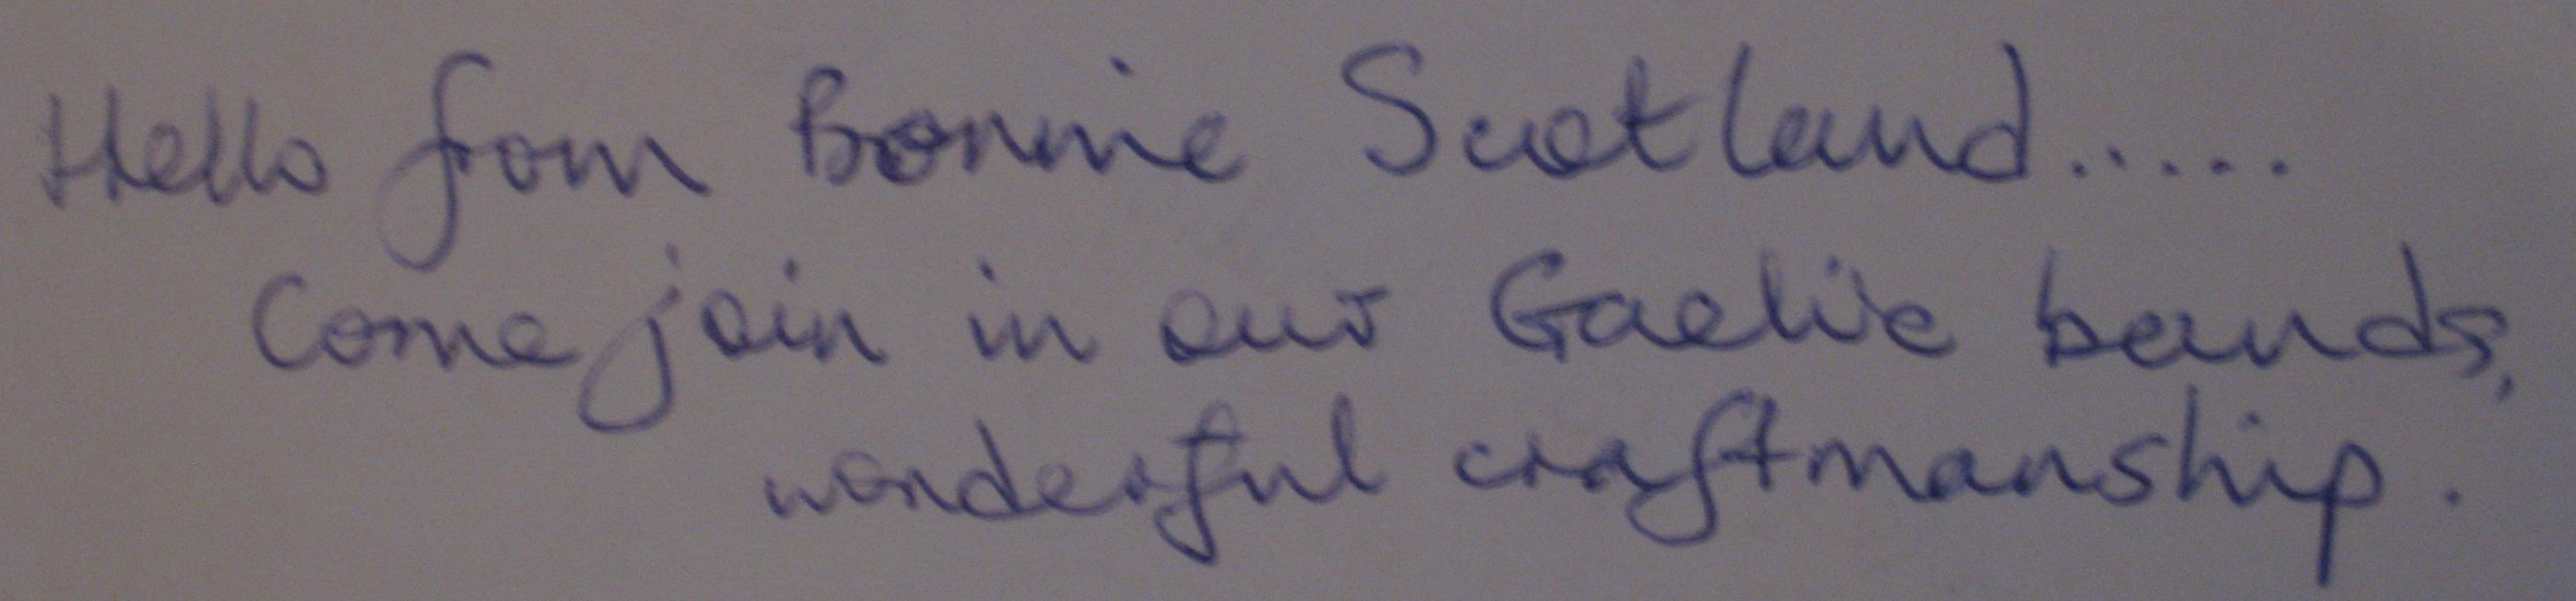 Hello from Bonnie Scotland.....
Come join in our Gaelic bands,
wonderful craftmanship.